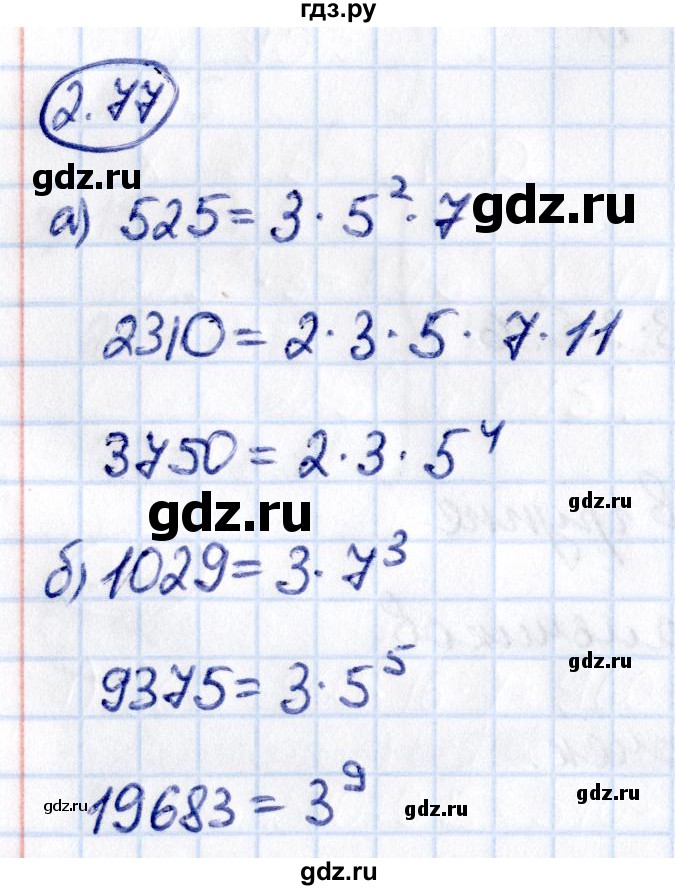 гдз.ру
2.77
gdz.ru
а) 525 = 3 · 5² · 7
gdz.ru
2310 = 2 · 3 · 5 · 7 · 11
3750 = 2 · 3 · 5⁴
gdz.ru
gdz.ru
б) 1029 = 3 · 7³
9375 = 3 · 5⁵
gdz.ru
19683 = 3⁹
gdz.ru
gdz.ru
gdz.ru
gdz.ru